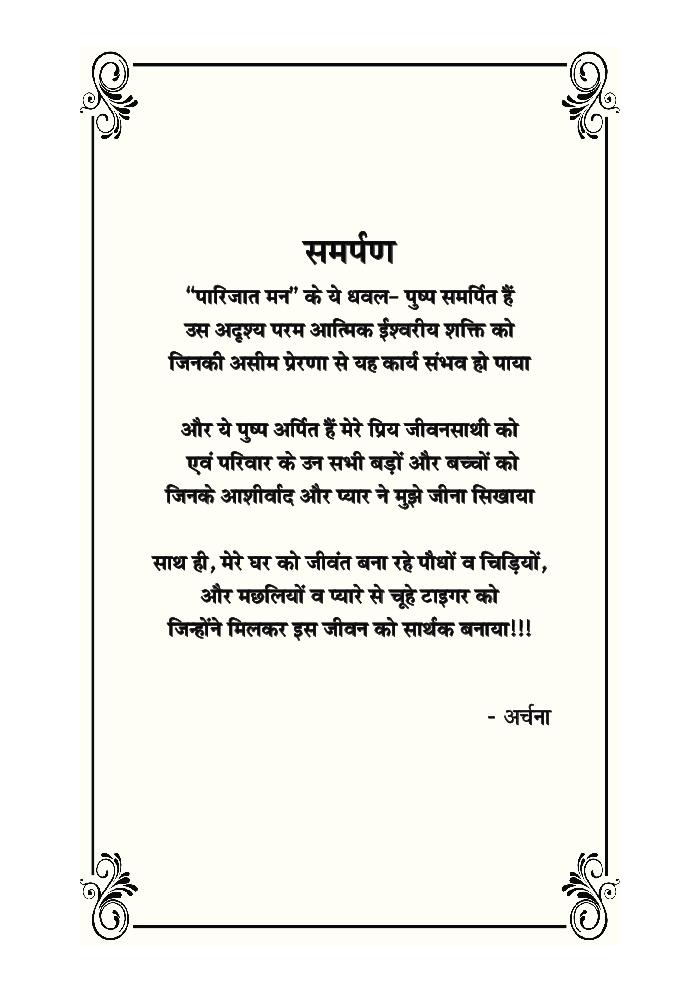 समर्पण
“पारिजात मन” के ये धवल- पुष्प समर्पित हैं
उस अदृश्य परम आत्मिक ईश्वरीय शक्ति को
जिनकी असीम प्रेरणा से यह कार्य संभव हो पाया
और ये पुष्प अर्पित हैं मेरे प्रिय जीवनसाथी को
एवं परिवार के उन सभी बड़ों और बच्चों को
जिनके आशीर्वाद और प्यार ने मुझे जीना सिखाया
साथ ही, मेरे घर को जीवंत बना रहे पौधों व चिड़ियों,
और मछलियों व प्यारे से चूहे टाइगर को
जिन्होंने मिलकर इस जीवन को सार्थक बनाया!!!
- अर्चना